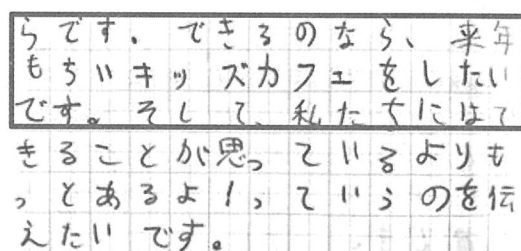 らです。できるのなら、来年
もちいキッズカフェをしたい
です。そして、私たちにはて
きることが思っているよりも
っとあるよ!っていうのを伝
えたいです。